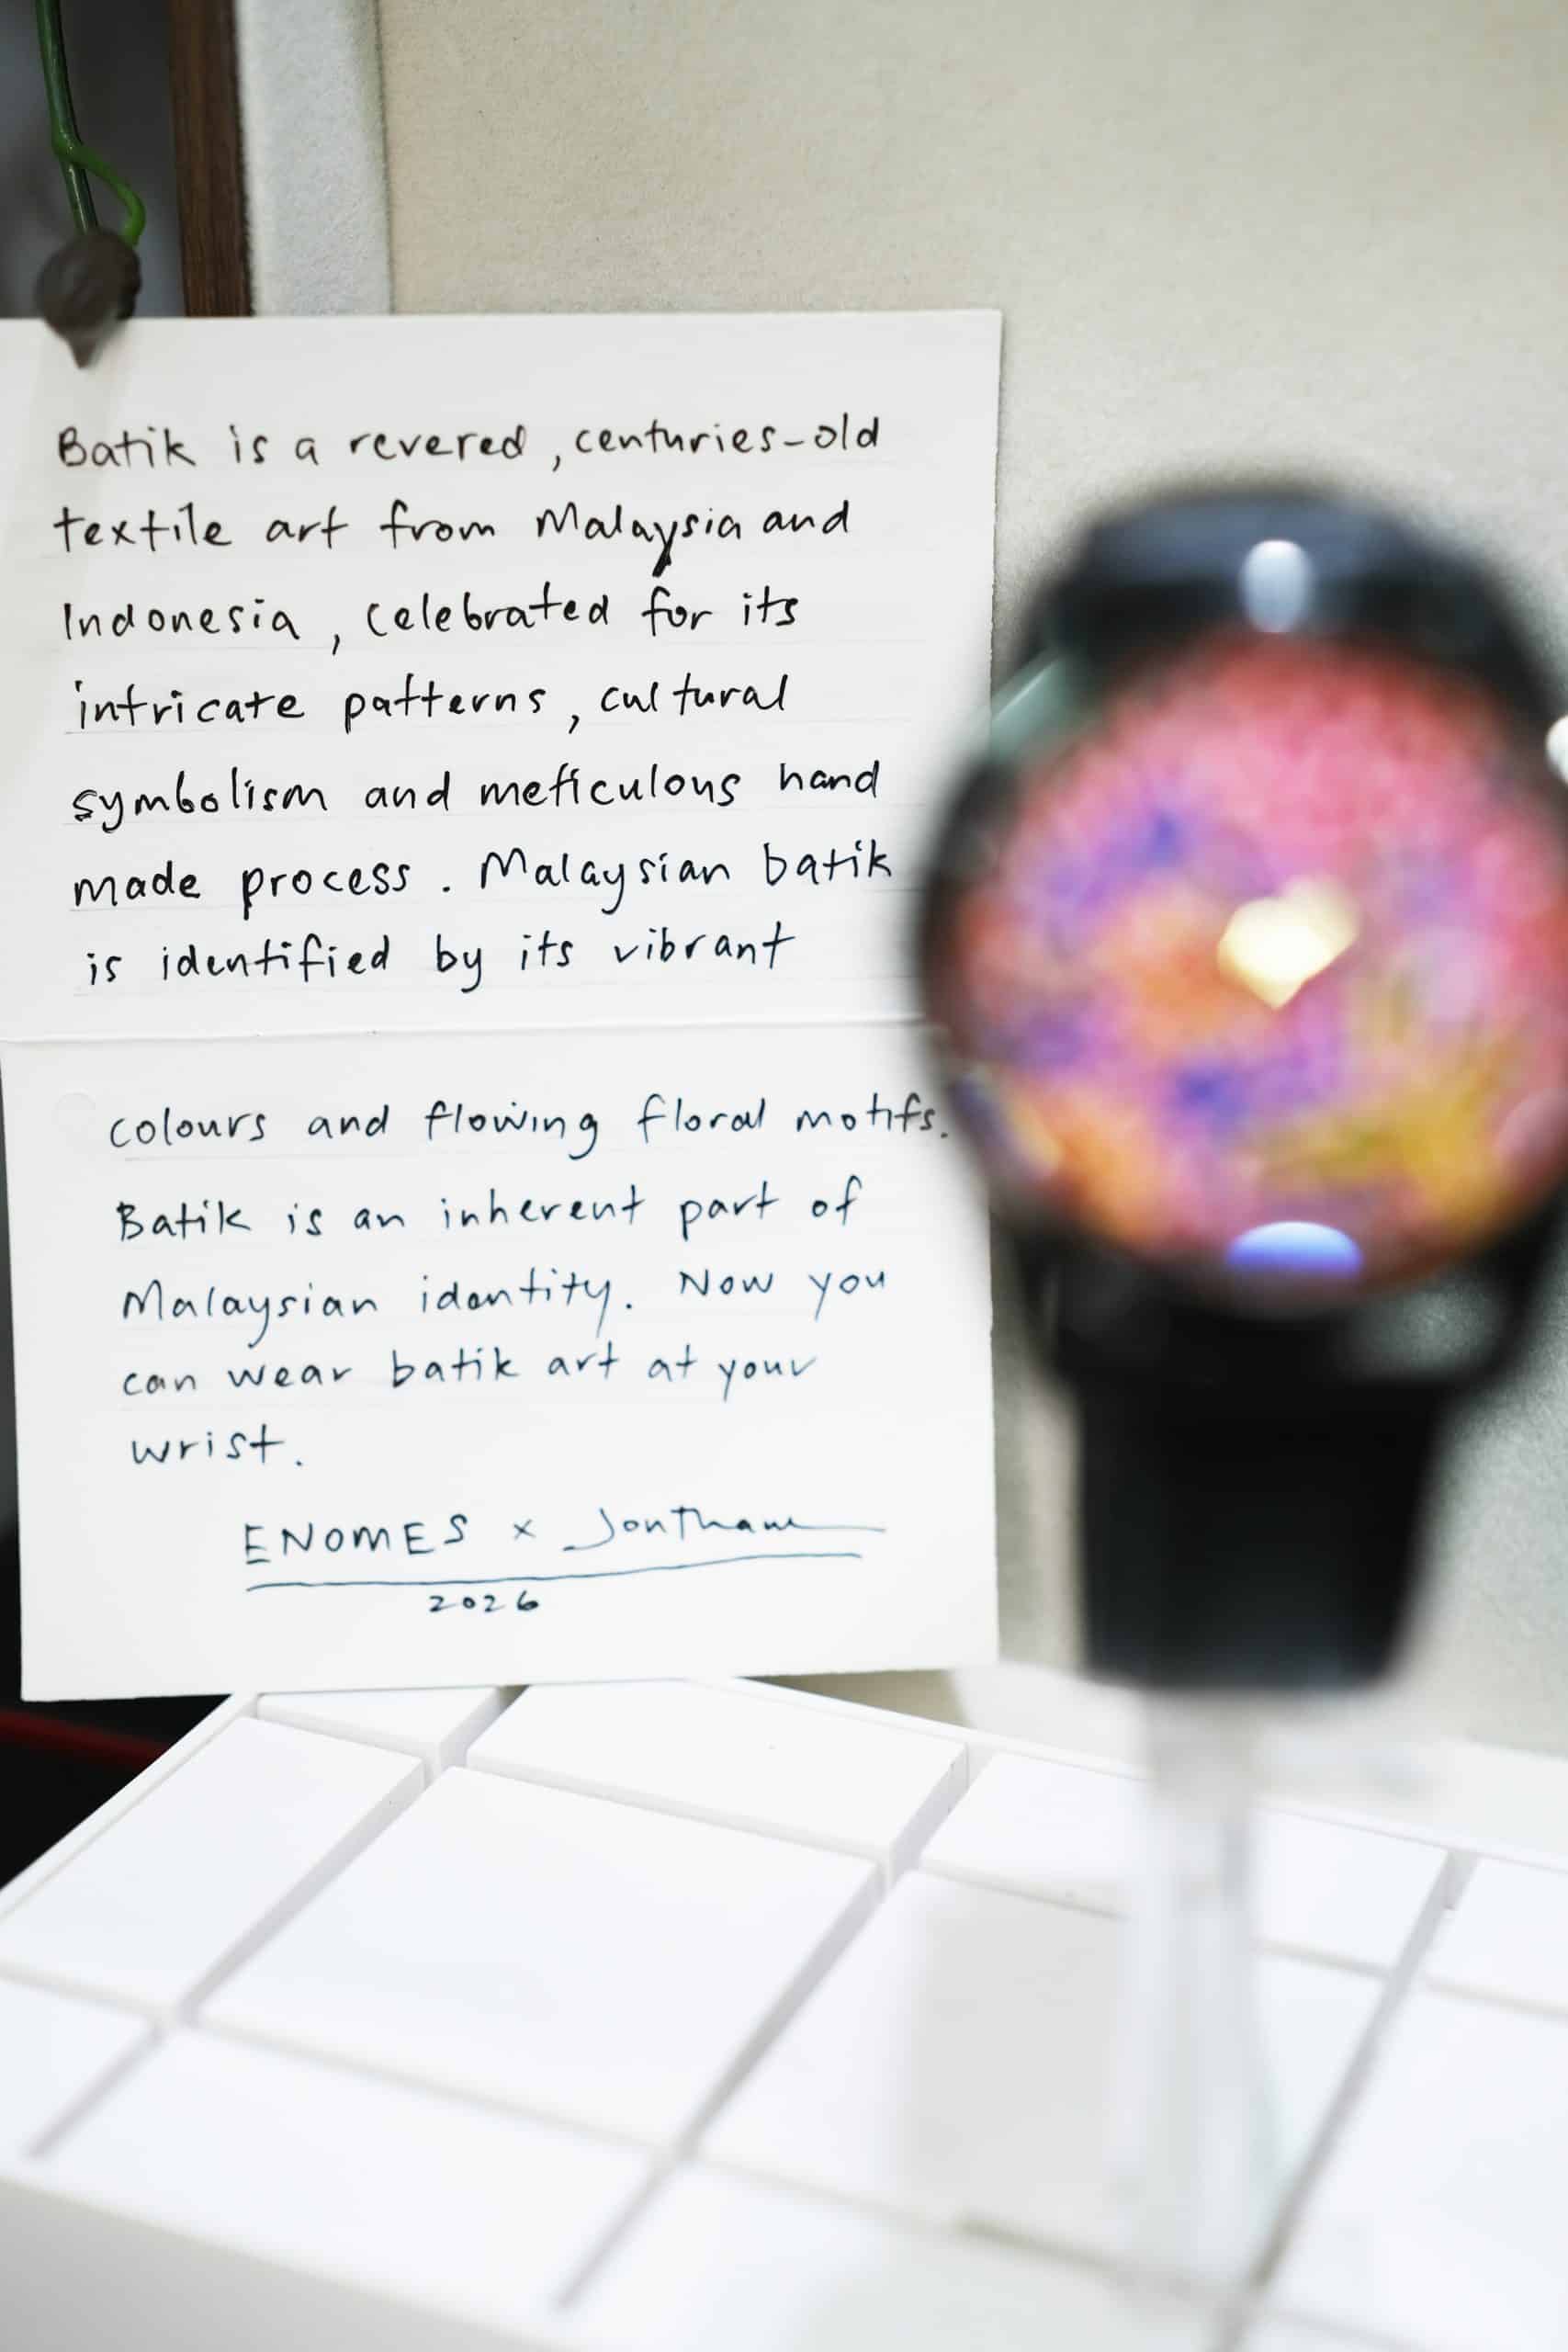 Batik is a revered, centuries-old
textile art from Malaysia and
Indonesia, celebrated for its
intricate patterns, cultural
symbolism and meticulous hand
made process. Malaysian batik
is identified by its vibrant
colours and flowing floral motifs.
Batik is an inherent part of
Malaysian identity. Now you
can wear batik art at your
wrist.
ENOMES x
2026